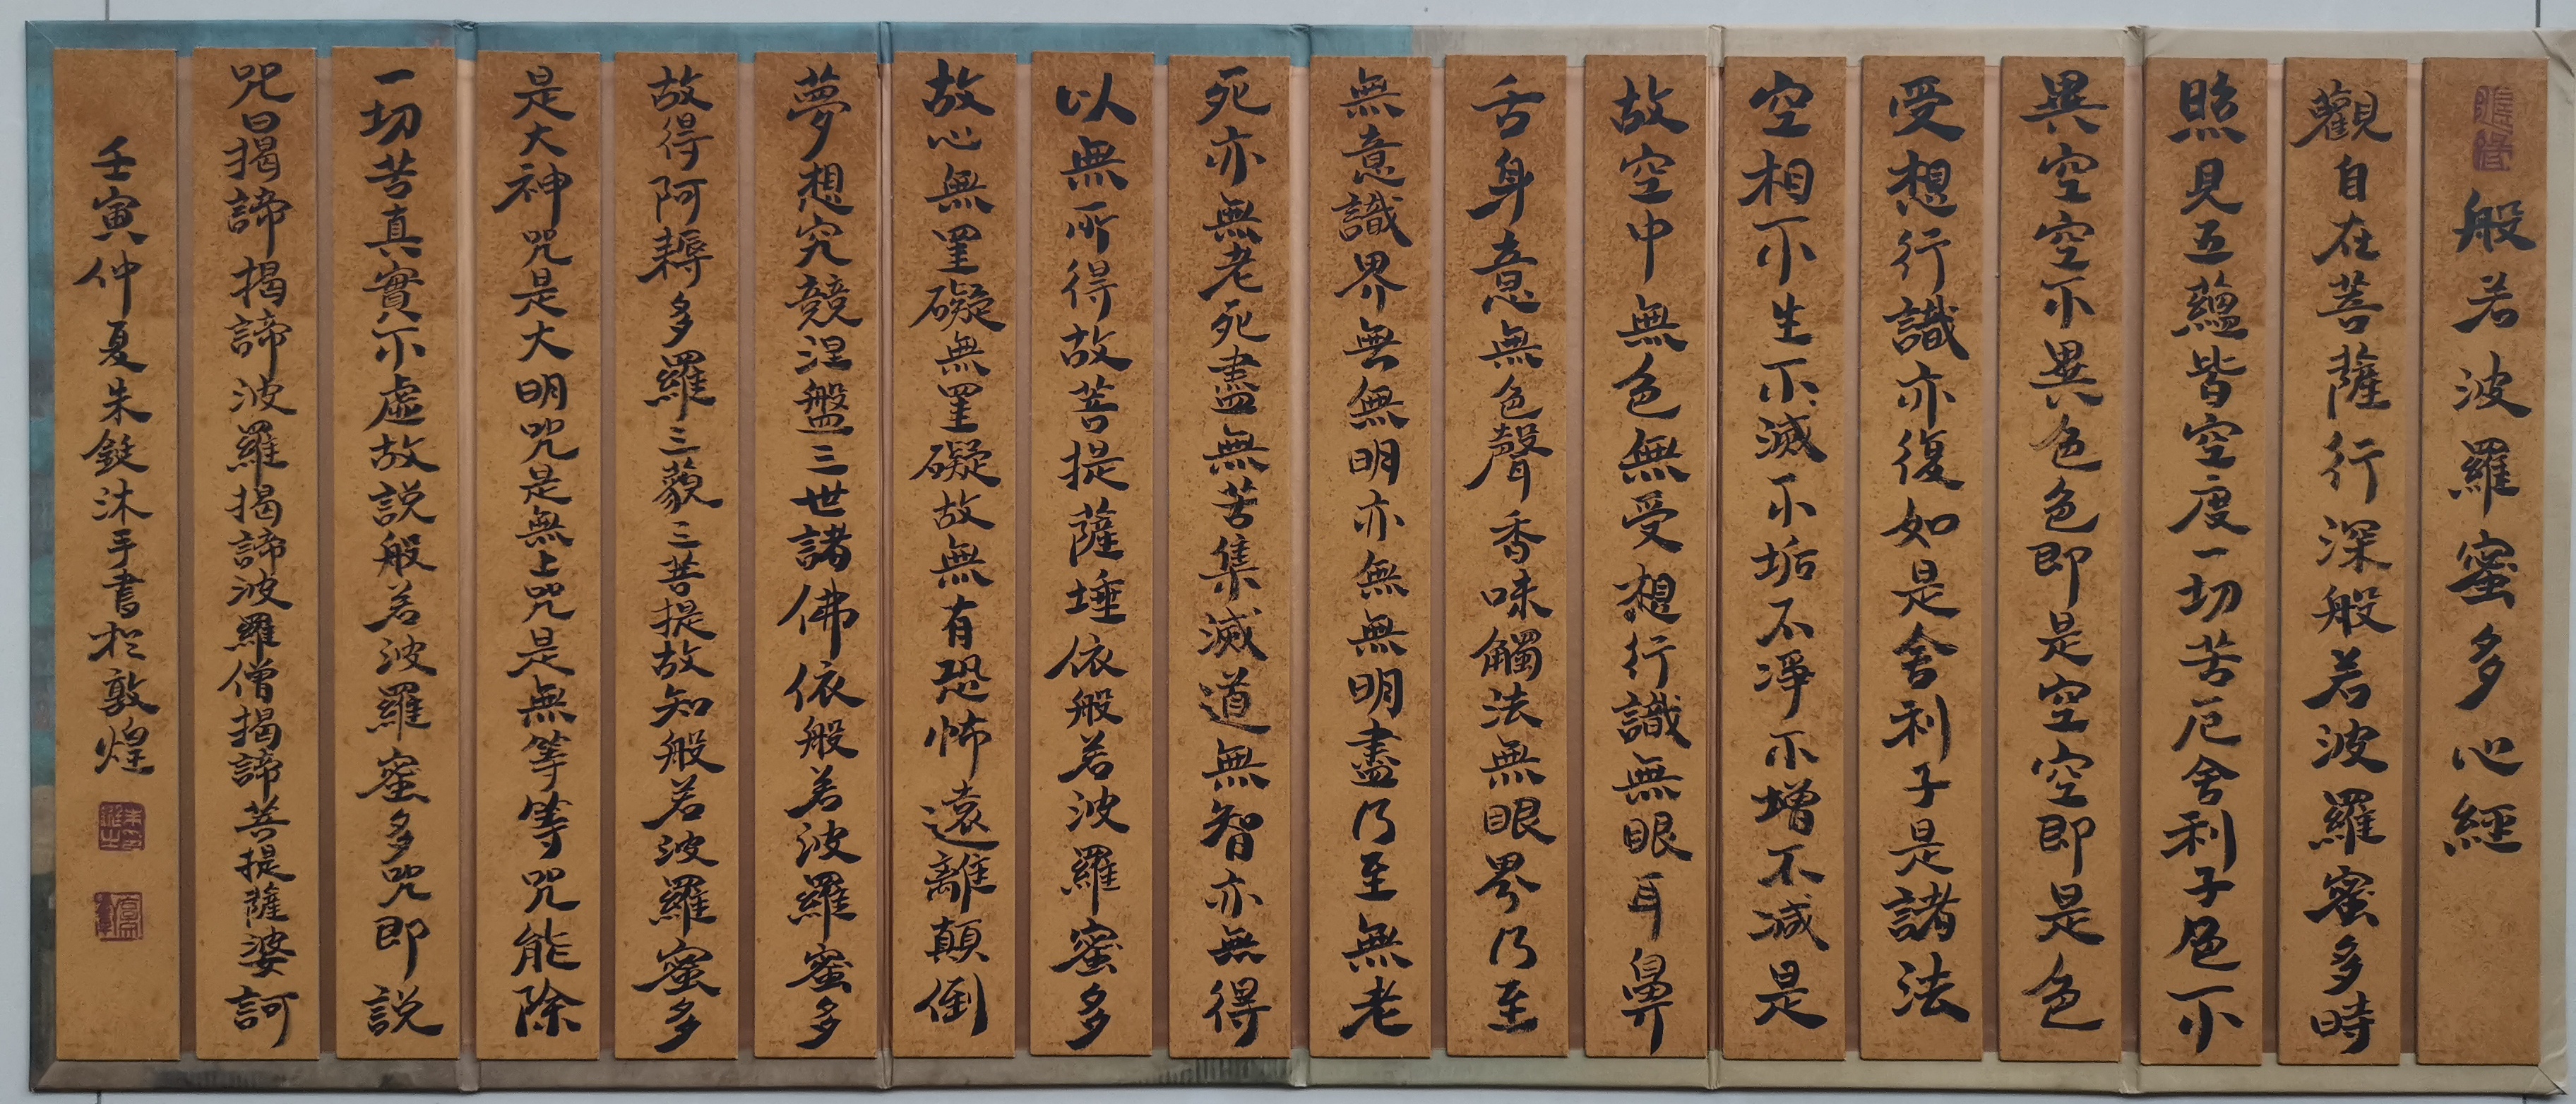 般若波羅蜜多心經
觀自在菩薩行深般若波羅蜜多時
照見五蘊皆空度一切苦厄舍利子色不
異空空不異色色即是空空即是色
受想行識亦復如是舍利子是諸法
空相不生不滅不垢不淨不增不減是
故空中無色無受想行識無眼耳鼻
舌身意無色聲香味觸法無眼界乃至
無意識界無無明亦無無明盡乃至無老
死亦無老死盡無苦集滅道無智亦無得
以無所得故菩提薩埵依般若波羅蜜多
故心無罣礙無罣礙故無有恐怖遠離顛倒
夢想究競涅盤三世諸佛依般若波羅蜜多
故得阿耨多羅三藐三菩提故知般若波羅蜜多
是大神咒是大明咒是無上咒是無等等咒能除
一切苦真實不虛故説般若波羅蜜多咒即説
咒曰揭諦揭諦波羅揭諦波羅僧揭諦菩提薩婆訶
壬寅仲夏朱鋌沐手書於敦煌